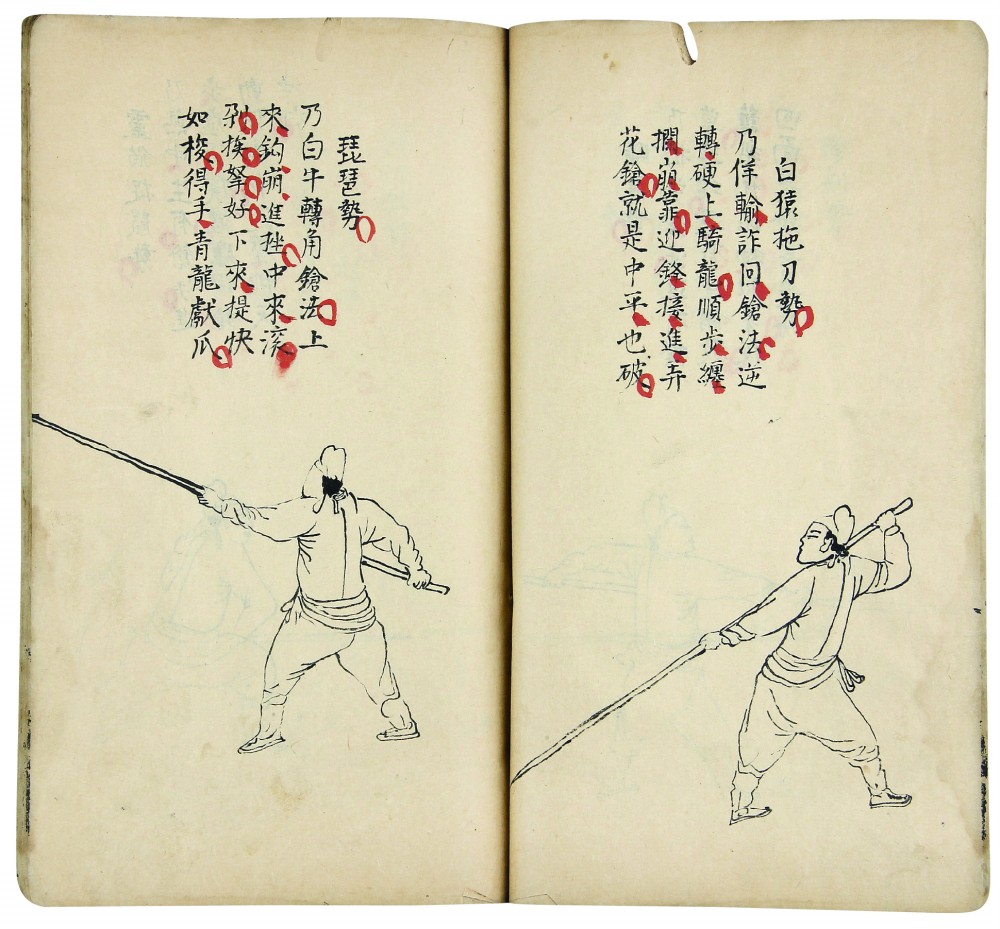 白猿拖刀勢
乃佯輸詐回鎗法逆
轉硬上騎龍順步纏
攔崩靠迎鋒接進弄
花鎗就是中平也破
琵琶勢
乃白牛轉角鎗法上
來鈎崩進挫中來滚
剁挨拏好下來提快
如梭得手青龍獻爪